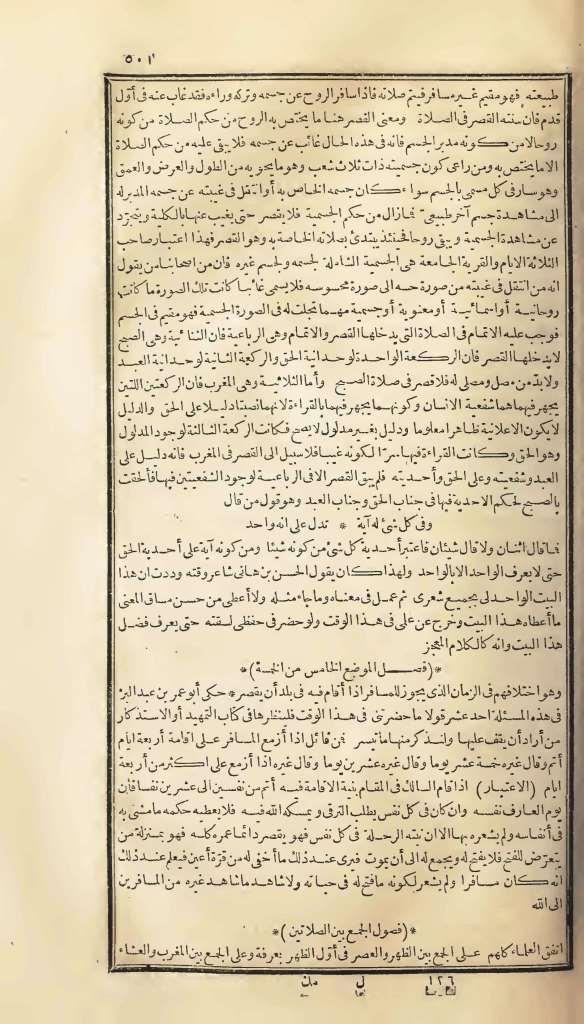 ٥٠١
طبيعته فهو مقيم غير مسافر فيتم صلاته فاذا سافر الروح عن جسمه وتركه وراءه فقد غاب عنه فى أوّل
قدم فان سنته القصر فى الصلاة ومعنى القصر هنا ما يختص به الروح من حكم الصلاة من كونه
روحا لا من كونه مدبر الجسم فانه فى هذه الحال غائب عن جسمه فلا يبقى عليه من حكم الصلاة
الا ما يختص به ومن راعى كون جسميته ذات ثلاث شعب وهو ما يحويه من الطول والعرض والعمق
وهو سار فى كل مسمى بالجسم سواء كان جسمه الخاص به أو انتقل فى غيبته عن جسمه المدبر له
الى مشاهدة جسم آخر طبيعى فما زال من حكم الجسمية فلا يقصر حتى يغيب عنها بالكلية ويتجرّد
عن مشاهدة الجسمية ويبقى روحا فحينئذ يبتدئ بصلاته الخاصة به وهو القصر فهذا اعتبار صاحب
الثلاثة الايام والقرية الجامعة هى الجسمية الشاملة لجسمه ولجسم غيره فان من اصحابنا من يقول
انه من انتقل فى غيبته من صورة حسه الى صورة محسوسه فلا يسمى غائبا كانت تلك الصورة ما كانت
روحانية أو اسمائية أو معنوية أو جسمية مهما تجلت له فى الصورة الجسمية فهو مقيم فى الجسم
فوجب عليه الاتمام فى الصلاة التى يدخلها القصر والاتمام وهى الرباعية فان الثنائية وهى الصبح
لا يدخلها القصر فان الركعة الواحدة لوحدانية الحق والركعة الثانية لوحدانية العبد
ولا بدّ من مصل ومصلى له فلا قصر فى صلاة الصبح وأما الثلاثية وهى المغرب فان الركعتين اللتين
يجهر فيهما هما شفعية الانسان وكونهما يجهر فيهما بالقراءة لانهما نصبتا دليلا على الحق والدليل
لا يكون الا علانية ظاهرا معلوما ودليل بغير مدلول لا يصح فكانت الركعة الثالثة لوجود المدلول
وهو الحق وكانت القراءة فيها سرّا لكونه غيبا فلا سبيل الى القصر فى المغرب فانه دليل على
العبد وشفعيته وعلى الحق وأحديته فلم يبق القصر الا فى الرباعية لوجود الشفعيتين فيها فألحقت
بالصبح لحكم الاحدية فيها فى جناب الحق وجناب العبد وهو قول من قال
وفى كل شئ له آية * تدل على انه واحد
فما قال اثنان ولا قال شيئان فاعتبر أحدية كل شئ من كونه شيئا ومن كونه آية على أحدية الحق
حتى لا يعرف الواحد الا بالواحد ولهذا كان يقول الحسن بن هانى شاعر وقته وددت ان هذا
البيت الواحد لى بجميع شعرى ثم عمل فى معناه وما جاء مثله ولا أعطى من حسن مساق المعنى
ما أعطاه هذا البيت وخرج عن على فى هذا الوقت ولو حضر فى حفظى لسقته حتى يعرف فضل
هذا البيت وانه كالكلام المعجز
*(فصل الموضع الخامس من الخمسة)*
وهو اختلافهم فى الزمان الذى يجوز للمسافر اذا أقام فيه فى بلد أن يقصر * حكى أبو عمر بن عبد البرّ
فى هذه المسئلة احد عشر قولا ما حضرتنى فى هذا الوقت فلينظرها فى كتاب التمهيد أو الاستذكار
من أراد أن يقف عليها ولنذكر منها ما تيسر فمن قائل اذا أزمع المسافر على اقامة أربعة ايام
أتم وقال غيره خمسة عشر يوما وقال غيره عشرين يوما وقال غيره اذا أزمع على اكثر من أربعة
ايام (الاعتبار) اذا قام السالك فى المقام بنية الاقامة فيه أتم من نفسين الى عشرين نفسا فان
يوم العارف نفسه وان كان فى كل نفس يطلب الترقى ويمسكه الله فيه فلا يعطيه حكمه ما مشى به
فى أنفاسه ولم يشعره بها الا ان نيته الرحلة فى كل نفس فهو يقصر دائما عمره كله فهو بمنزلة من
يتعرّض للفتح فلا يفتح له ويجمع له الى أن يموت فيرى عند ذلك ما أخفى له من قرّة أعين فيعلم عند ذلك
انه كان مسافرا ولم يشعر لكونه ما فتح له فى حياته ولا شاهد ما شاهد غيره من المسافرين
الى الله
*(فصول الجمع بين الصلاتين)*
اتفق العلماء كلهم على الجمع بين الظهر والعصر فى أوّل الظهر بعرفة وعلى الجمع بين المغرب والعشاء
١٢٦ ل مك